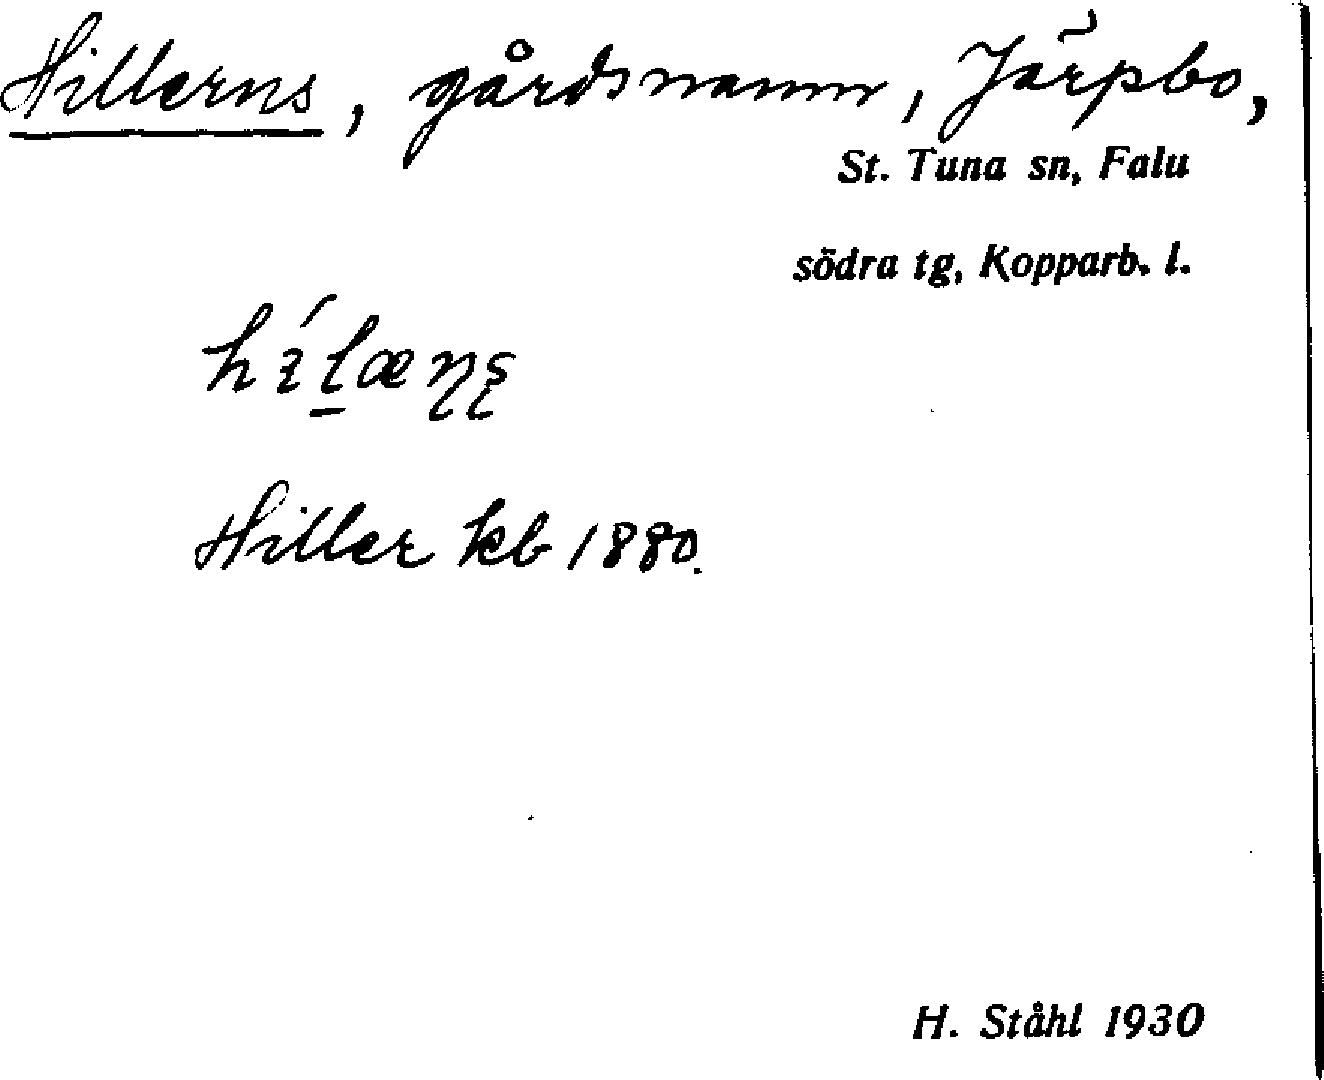 Hillerns, gårdsnamn, Järpbo,
St. Tuna sn, Falu
södra tg, Kopparb. l.
Hiller kb 1880.
H. Ståhl 1930